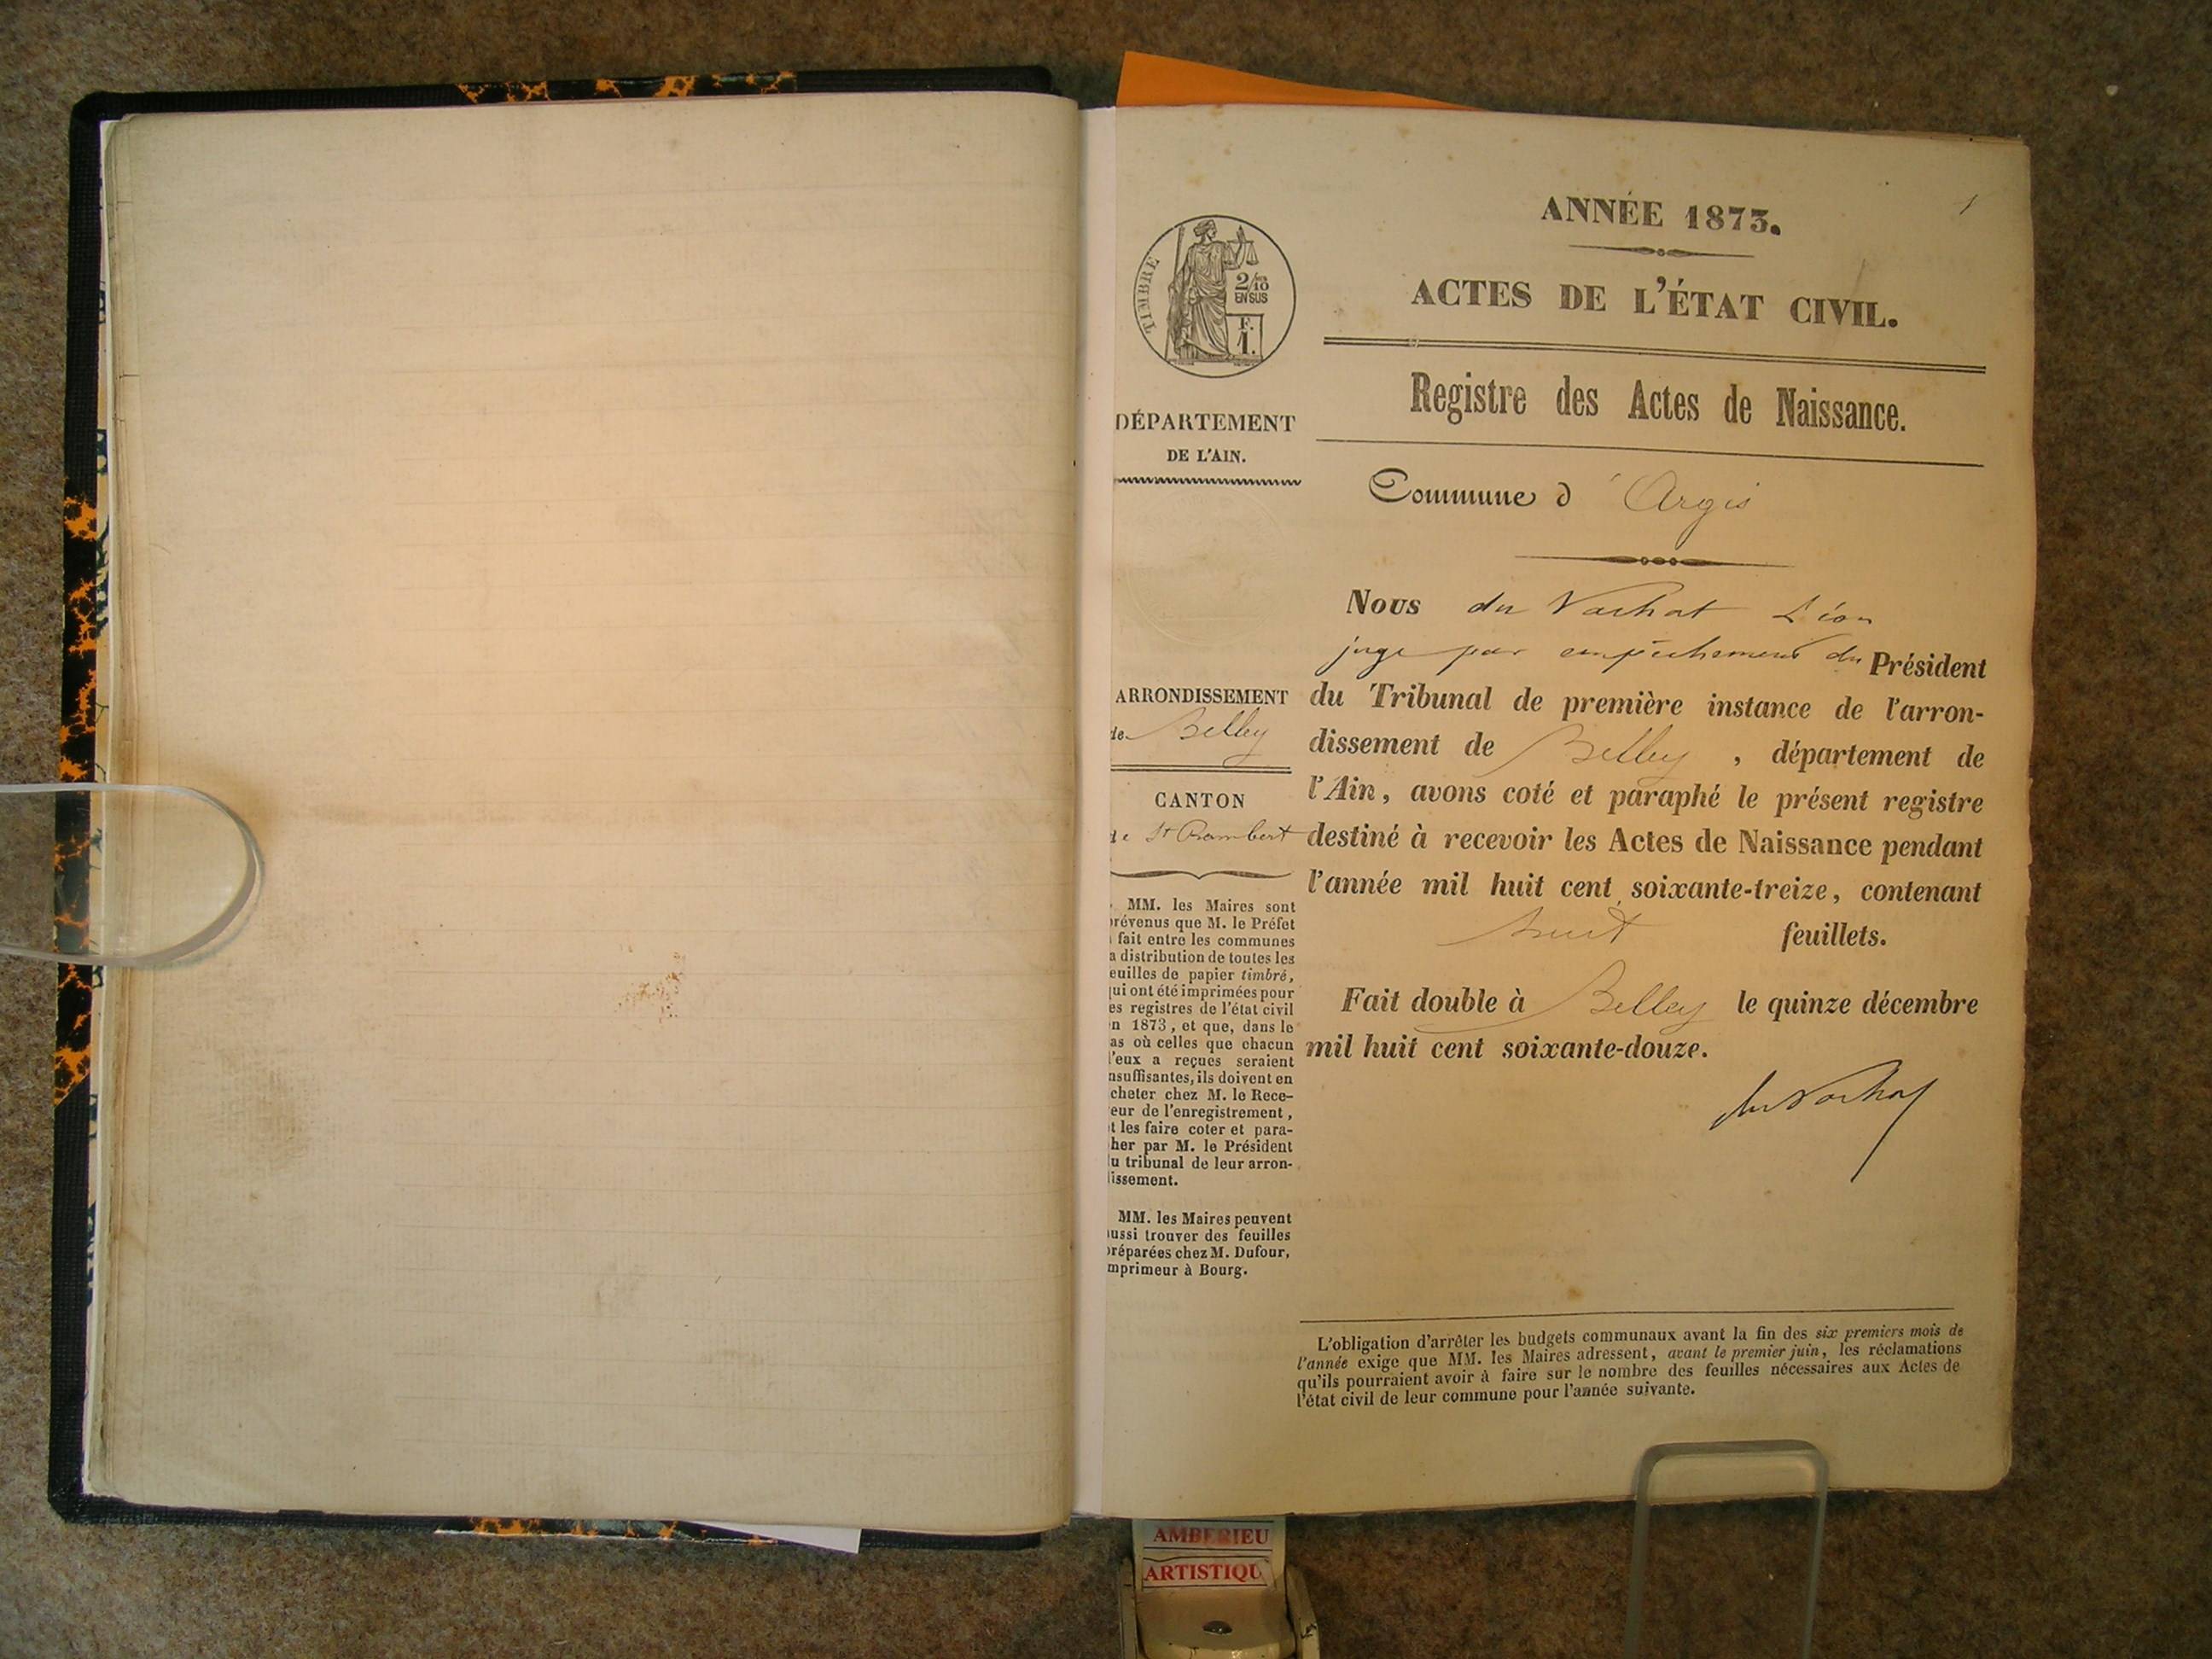 1
ANNÉE 1873.
ACTES DE L'ÉTAT CIVIL.
Registre des Actes de Naissance.
Commune d'Argis
TIMBRE
2/10
EN SUS
F.
1.
DÉPARTEMENT
DE L'AIN.
ARRONDISSEMENT
de Belley
CANTON
de St Rambert
MM. les Maires sont
révenus que M. le Préfet
fait entre les communes
a distribution de toutes les
euilles de papier timbré,
ui ont été imprimées pour
es registres de l'état civil
n 1873, et que, dans le
as où celles que chacun
'eux a reçues seraient
nsuffisantes, ils doivent en
cheter chez M. le Rece-
eur de l'enregistrement,
t les faire coter et para-
her par M. le Président
u tribunal de leur arron-
issement.
MM. les Maires peuvent
ussi trouver des feuilles
réparées chez M. Dufour,
mprimeur à Bourg.
Nous du Vachat Léon
juge par empêchement du Président
du Tribunal de première instance de l'arron-
dissement de Belley, département de
l'Ain, avons coté et paraphé le présent registre
destiné à recevoir les Actes de Naissance pendant
l'année mil huit cent soixante-treize, contenant
huit feuillets.
Fait double à Belley le quinze décembre
mil huit cent soixante-douze.
du Vachat
L'obligation d'arrêter les budgets communaux avant la fin des six premiers mois de
l'année exige que MM. les Maires adressent, avant le premier juin, les réclamations
qu'ils pourraient avoir à faire sur le nombre des feuilles nécessaires aux Actes de
l'état civil de leur commune pour l'année suivante.
AMBERIEU
ARTISTIQU